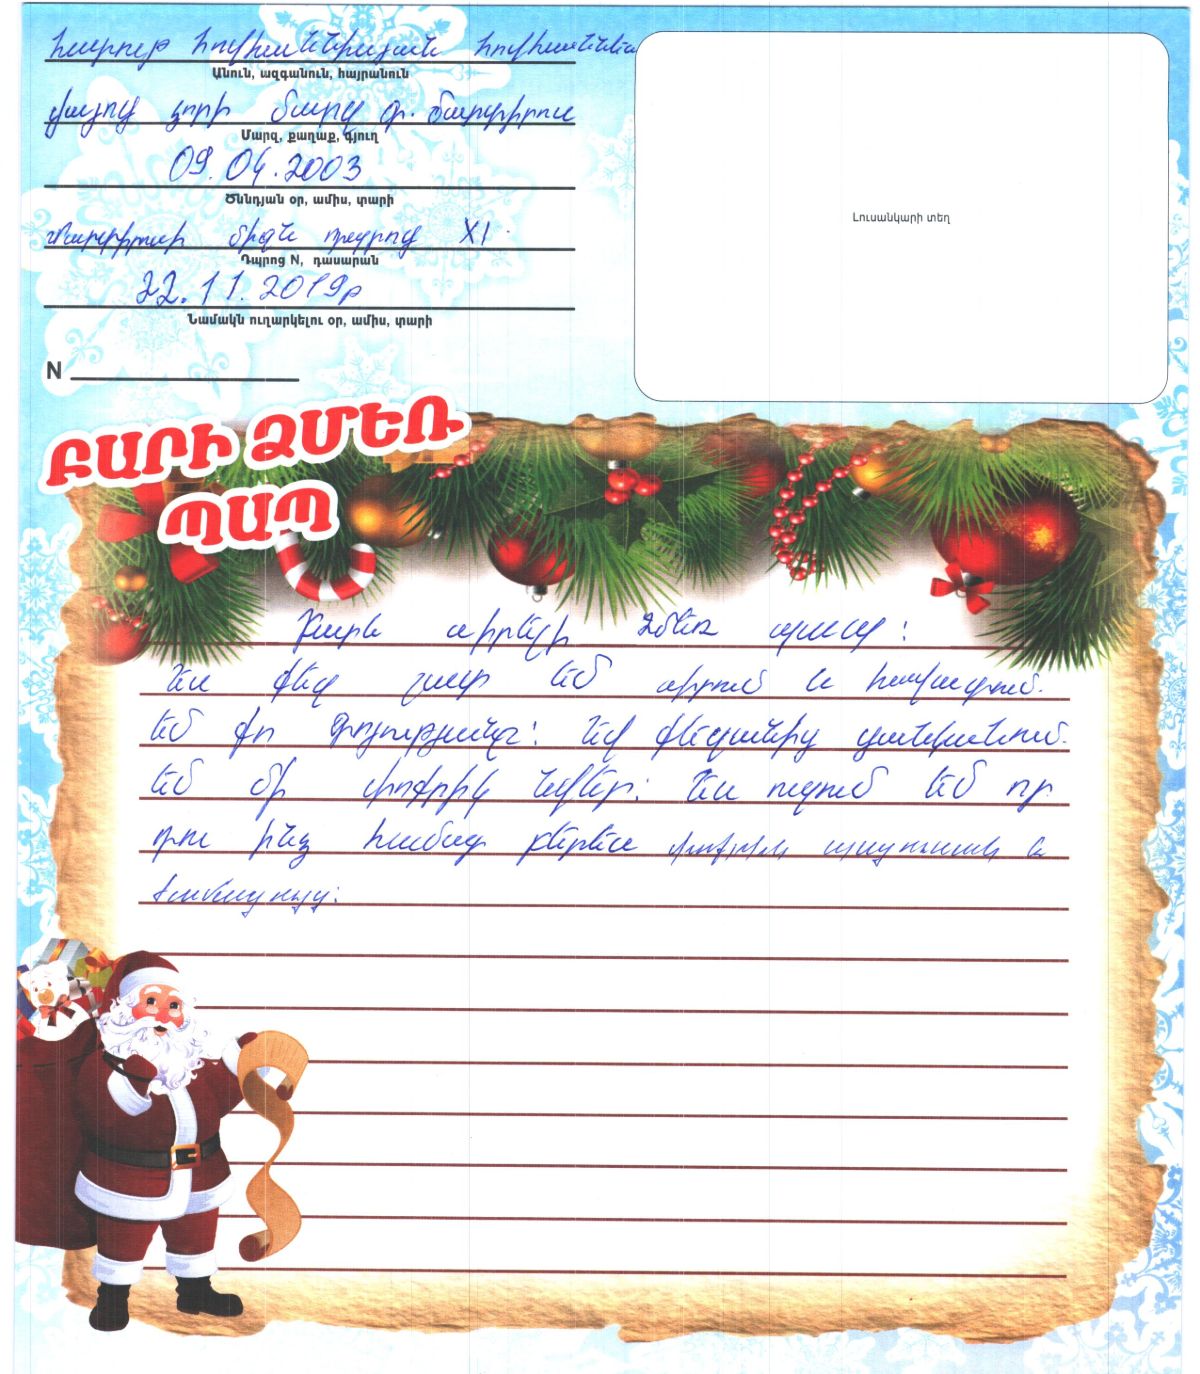 Հարութ Հովհաննիսյան Հովհաննեսի
Անուն, ազգանուն, հայրանուն
վայոց ձորի մարզ գ. Մարտիրոս
Մարզ, քաղաք, գյուղ
09.04.2003
Ծննդյան օր, ամիս, տարի
Մարտիրոսի միջն դպրոց XI
Դպրոց N, դասարան
22.11.2019թ
Նամակն ուղարկելու օր, ամիս, տարի
N
Լուսանկարի տեղ
ԲԱՐԻ ՁՄԵՌ
ՊԱՊ
Բարև սիրելի Ձմեռ պապ:
Ես քեզ շատ եմ սիրում և հավատում.
եմ քո գոյությանը: Եվ քեզանից ցանկանում.
եմ մի փոքրիկ նվեր: Ես ուզում եմ որ
դու ինձ համար բերես փոքրիկ պայուսակ և
ժամացույց: